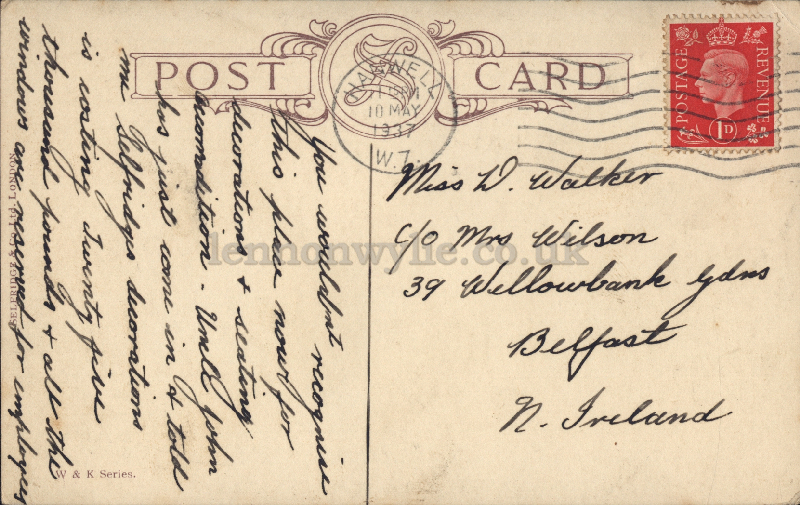 POST CARD
HANWELL
10 MAY
1937
W.7.
POSTAGE
REVENUE
1D
Miss D. Walker
C/O Mrs Wilson
39 Willowbank Gdns
Belfast
N. Ireland
You wouldnt recognise
this place now for
decorations & seating
accomodition - Uncle John
has just come in & told
me Selfridges decorations
is costing twenty five
thousand pounds & all the
windows are reserved for employees
SELFRIDGE & Co Ltd. LONDON.
W & K Series.
lennonwylie.co.uk